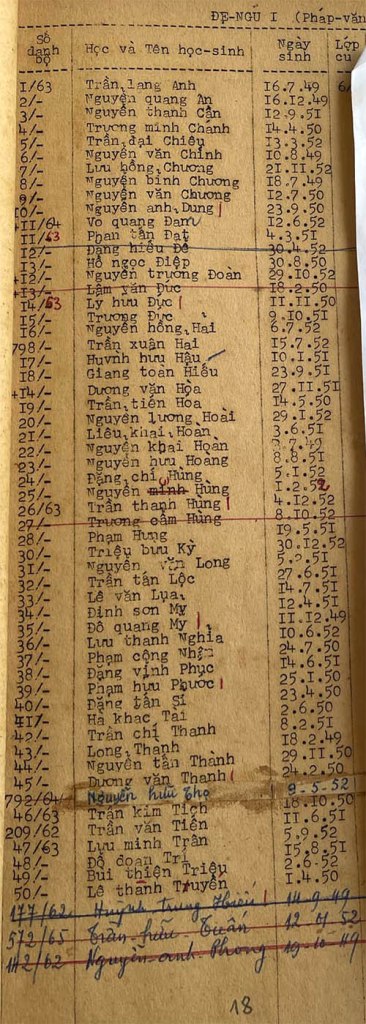 ĐỆ-NGŨ I (Pháp-văn
Số danh bộ Học và Tên học-sinh Ngày sinh Lớp cu
I/63 Trần lang Anh I6.7.49 6/
2/- Nguyễn quang Ân I6.I2.49
3/- Nguyễn thanh Cần I2.9.5I
4/- Trương minh Chánh I4.4.50
5/- Trần đại Chiêu I3.3.52
6/- Nguyễn văn Chinh I0.8.49
7/- Lưu hồng Chương 2I.II.52
8/- Nguyễn bình Chương I8.7.49
9/- Nguyễn văn Chương I2.7.50
I0/- Nguyễn anh Dung 23.9.50
+II/64 Vo quang Đam I2.6.52
II/63 Phan tấn Đạt 4.3.5I
I2/- Đặng hiếu Đề 30.4.52
I3/- Hồ ngọc Điệp 30.8.50
+I2/- Nguyễn trương Đoàn 29.I0.52
+I3/- Lâm văn Đức I8.2.50
I4/63 Lý hưu Đức II.II.50
I5/- Trương Đức 9.I0.5I
I6/- Nguyễn hồng Hai 6.7.52
798/- Trần xuân Hai I5.7.52
I7/- Huynh hưu Hậu I0.I.5I
I8/- Giang toàn Hiếu 23.9.5I
+I4/- Dương văn Hòa 27.II.5I
I9/- Trần tiến Hòa I4.5.50
20/- Nguyễn lương Hoài 29.I.52
2I/- Liêu khai Hoàn 3.6.5I
22/- Nguyễn khai Hoàn 3.7.49
23/- Nguyễn hưu Hoang 8.8.5I
24/- Đặng chí Hùng 5.I.52
25/- Nguyễn minh Hùng I.2.52
26/63 Trần thanh Hùng 4.I2.52
27/- Trương cẩm Hùng 8.I0.52
28/- Phạm Hưng I9.5.5I
30/- Triệu bưu Kỳ 30.I2.52
3I/- Nguyễn văn Long 5.2.5I
32/- Trần tấn Lộc 27.6.5I
33/- Lê văn Lụa I4.7.5I
34/- Đinh sơn My I2.4.5I
35/- Đỗ quang My II.I2.49
36/- Lưu thanh Nghĩa I0.6.52
37/- Phạm công Nhận 24.7.50
38/- Đặng vinh Phục I4.6.5I
39/- Phạm hưu Phước 25.I.50
40/- Đặng tấn Sĩ 23.4.50
4I/- Hà khac Tài 2.6.50
42/- Trần chí Thanh 8.2.5I
43/- Long Thạnh I8.2.49
44/- Nguyễn tấn Thành 29.II.50
45/- Dương văn Thanh 24.2.50
792/64 Nguyễn hữu Thọ 9-5-52
46/63 Trần kim Tích I8.I0.50
209/62 Trần văn Tiên II.6.5I
47/63 Lưu minh Trân 5.9.52
48/- Đỗ doan Trí I5.8.5I
49/- Bui thiện Triệu 2.6.52
50/- Lê thanh Truyền I.4.50
177/62 Huỳnh trung Hiếu 14-9-49
572/65 Trần hữu Tuấn 12 52
142/62 Nguyễn anh Phong 19-10-49
18